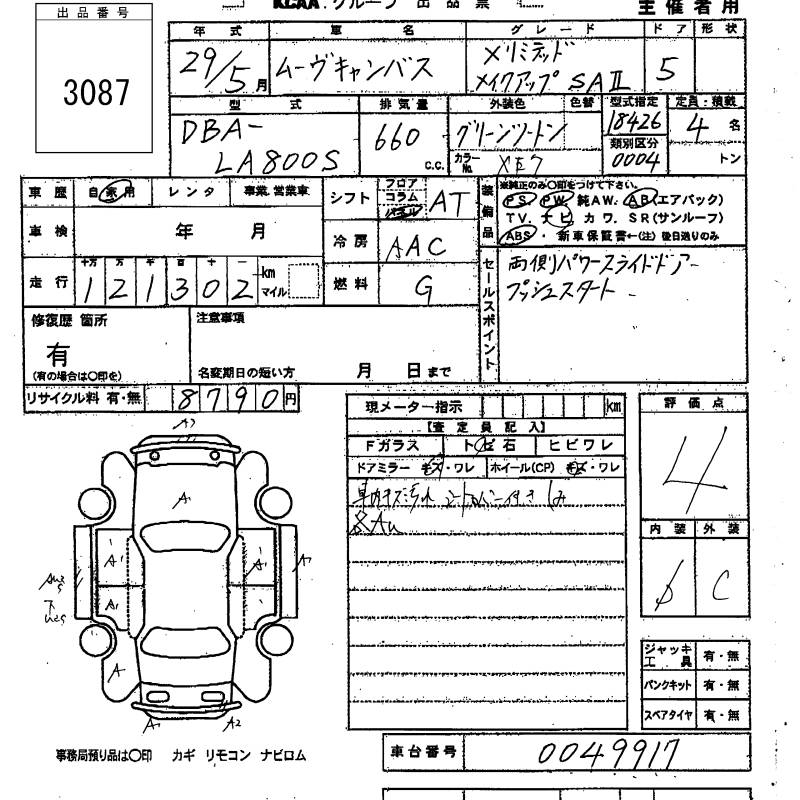 KCAA.グループ 出品票
主催者用
出品番号
3087
年式 車名 グレード ドア 形状
29/5月 ムーヴキャンバス Xリミテッド メイクアップ SAⅡ 5
型式 排気量 外装色 色替 型式指定 定員・積載
DBA-LA800S 660 C.C. グリーンツートン 18426 4 名
カラーNo. 類別区分 0004 トン
車歴 自家用 レンタ 事業.営業車 シフト フロア コラム パネル AT
装備品 ※純正のみ〇印をつけて下さい。
PS PW 純AW. AB(エアバック)
TV. ナビ カワ. SR(サンルーフ)
ABS・新車保証書←(注)後日送りのみ
車検 年 月 冷房 AAC
走行 十万 万 千 百 十 一
121302 km マイル 燃料 G
セールスポイント 両側パワースライドドアー
プッシュスタート
修復歴 箇所 注意事項
有
(有の場合は〇印を) 名変期日の短い方 月 日まで
リサイクル料 有・無 8790円
現メーター指示 km
評価点
4
【査定員記入】
Fガラス トビ石 ヒビワレ
ドアミラー キズ・ワレ ホイール(CP) キズ・ワレ
内装 外装
C
A
A1
A1
A1
A1
A
A1
A2
ジャッキ工具 有・無
パンクキット 有・無
スペアタイヤ 有・無
事務局預り品は〇印 カギ リモコン ナビロム
車台番号 0049917